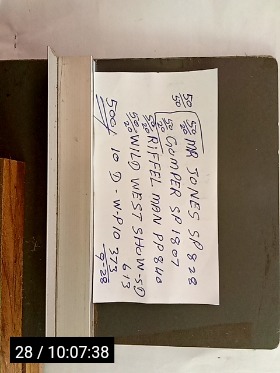 50/50 50/50 MR JONES SP 828
50/50 GOMPER SP 1807
50/20 RIFFEL MAN PP 840
50/20 WILD WEST SHOW-SD 613
500/ 10 D - W-P10 373
9-28
28 / 10:07:38